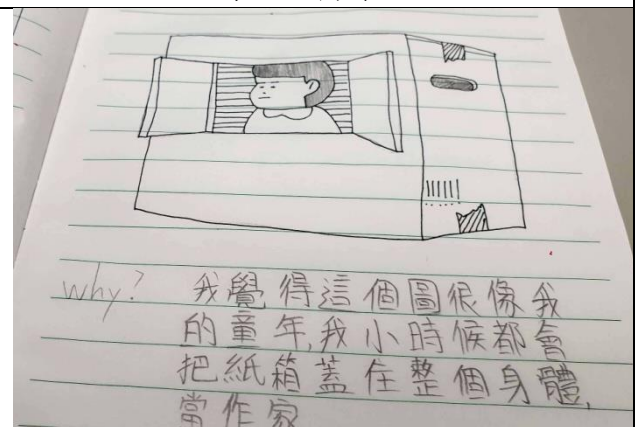 why? 我覺得這個圖很像我
的童年,我小時候都會
把紙箱蓋住整個身體,
當作家